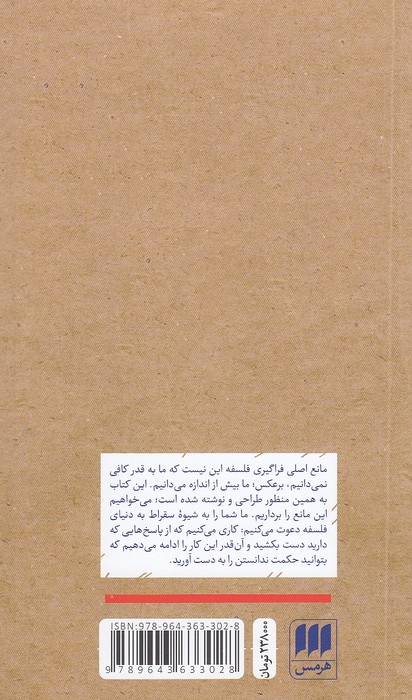 مانع اصلی فراگیری فلسفه این نیست که ما به قدر کافی
نمی‌دانیم، برعکس؛ ما بیش از اندازه می‌دانیم. این کتاب
به همین منظور طراحی و نوشته شده است؛ می‌خواهیم
این مانع را برداریم. ما شما را به شیوهٔ سقراط به دنیای
فلسفه دعوت می‌کنیم: کاری می‌کنیم که از پاسخ‌هایی که
دارید دست بکشید و آن‌قدر این کار را ادامه می‌دهیم که
بتوانید حکمت ندانستن را به دست آورید.
ISBN: 978-964-363-302-8
9 789643 633028
۲۳۸۰۰۰ تومان
هرمس